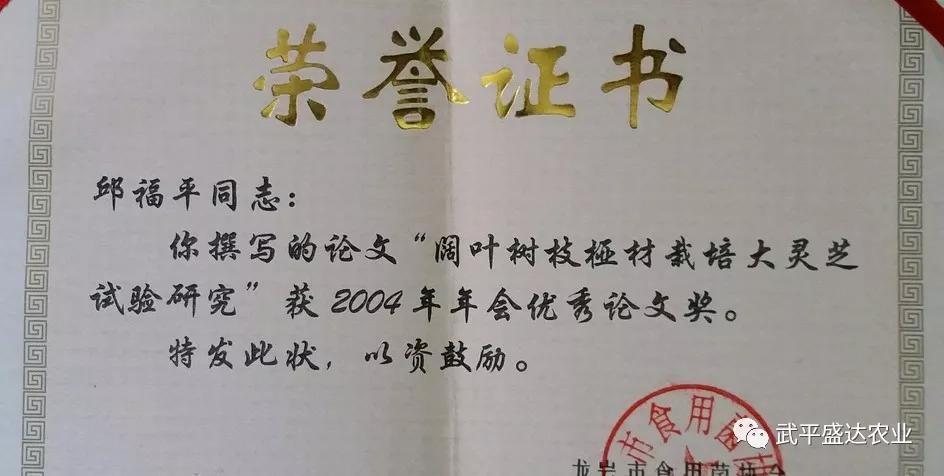 荣誉证书
邱福平同志：
你撰写的论文“阔叶树枝桠材栽培大灵芝
试验研究”获2004年年会优秀论文奖。
特发此状，以资鼓励。
市食用菌
龙岩市食用菌协会
武平盛达农业